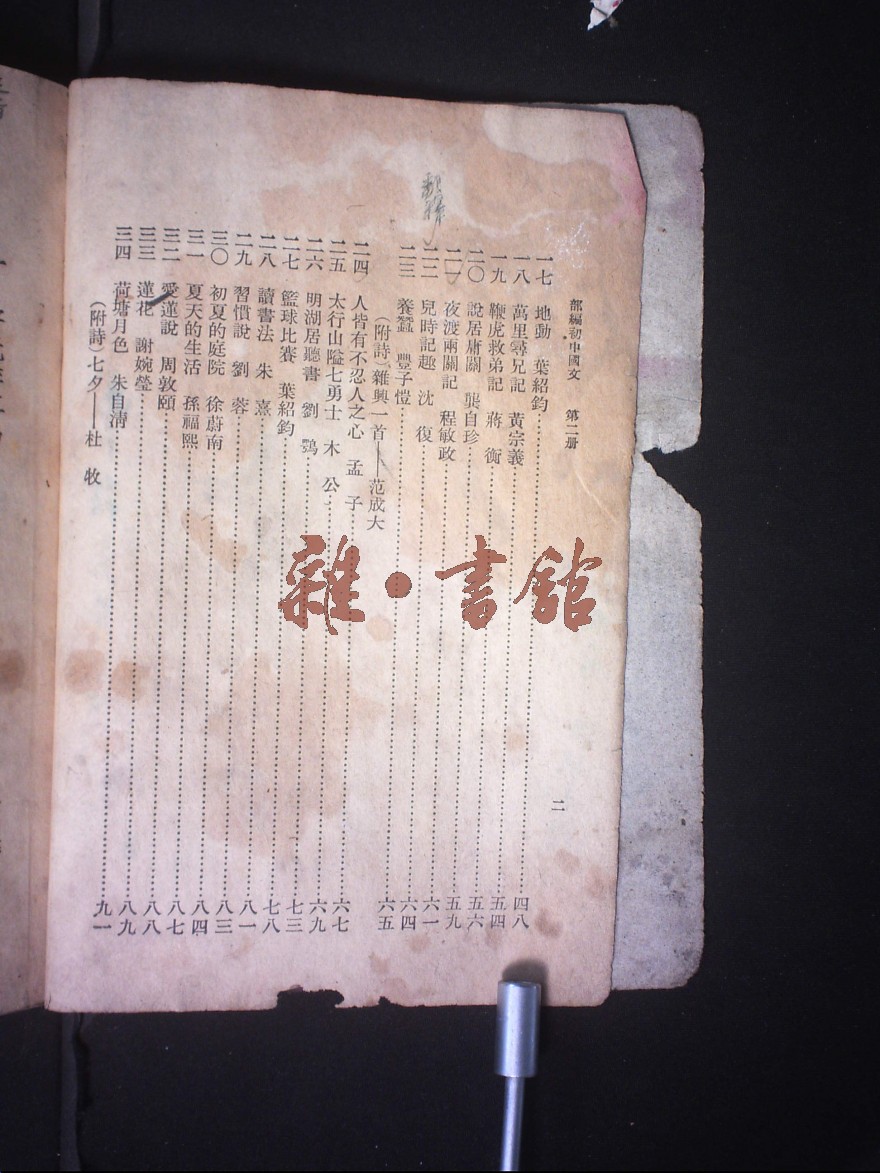 部編初中國文 第二册
二
一七 地動 葉紹鈞 四八
一八 萬里尋兄記 黃宗羲 五四
一九 鞭虎救弟記 蔣衡 五六
二〇 說居庸關 龔自珍 五九
二一 夜渡兩關記 程敏政 六一
二二 兒時記趣 沈復 六四
二三 養蠶 豐子愷 六五
(附詩)雜興一首——范成大
二四 人皆有不忍人之心 孟子 六七
二五 太行山隘七勇士 木公 六九
二六 明湖居聽書 劉鶚 七三
二七 籃球比賽 葉紹鈞 七八
二八 讀書法 朱熹 八一
二九 習慣說 劉蓉 八三
三〇 初夏的庭院 徐蔚南 八四
三一 夏天的生活 孫福熙 八七
三二 愛蓮說 周敦頤 八八
三三 蓮花 謝婉瑩 八九
三四 荷塘月色 朱自清 九一
(附詩)七夕——杜牧
雜·書館